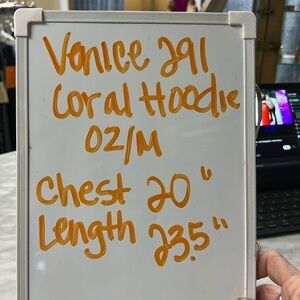 Venice 291
Coral Hoodie
02/M
Chest 20"
Length 23.5"